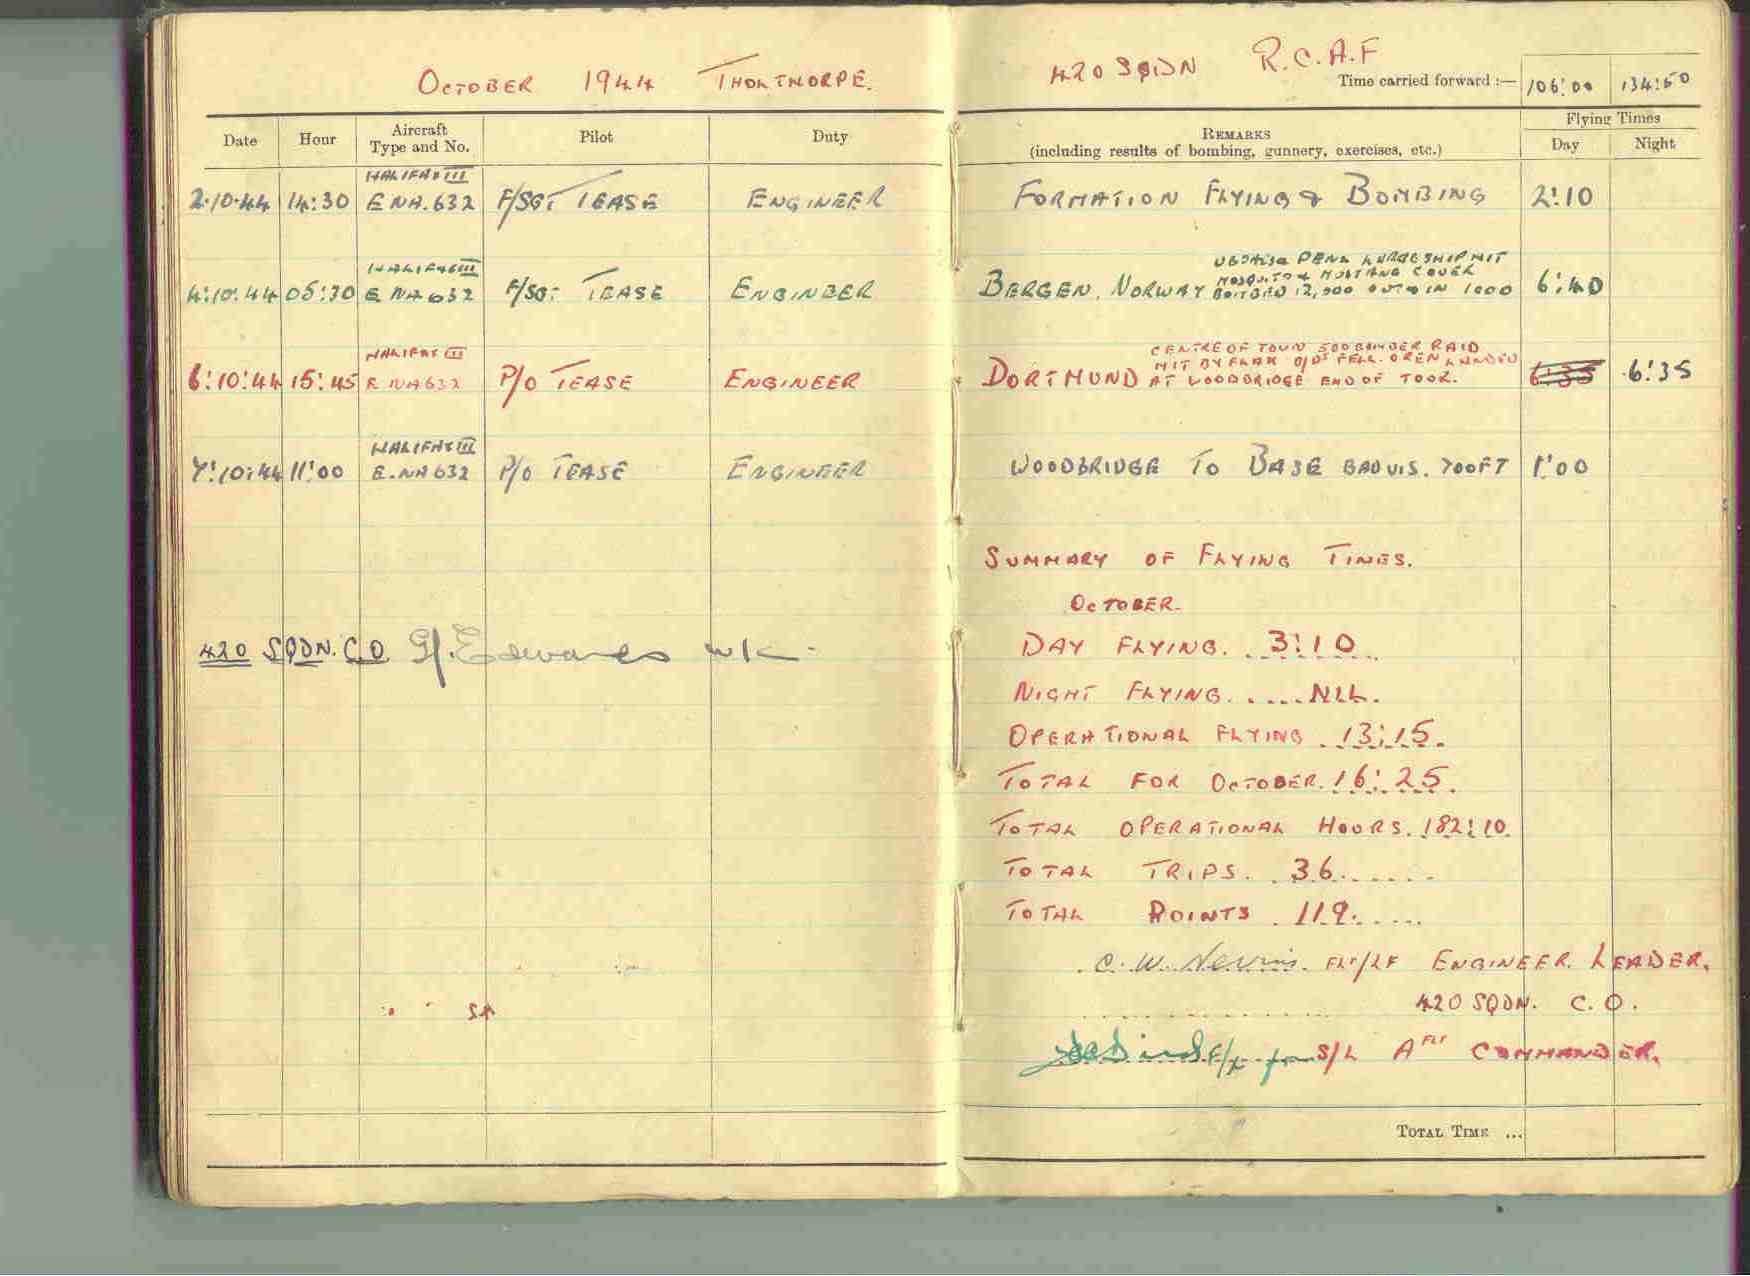 OCTOBER 1944 THOLTHORPE.
Date Hour Aircraft Type and No. Pilot Duty
HALIFAX III
2·10·44 14:30 E NA.632 F/SGT TEASE ENGINEER
HALIFAX III
4:10:44 05:30 E NA632 F/SGT TEASE ENGINEER
HALIFAX III
6:10:44 15:45 E NA632 P/O TEASE ENGINEER
HALIFAX III
7:10:44 11:00 E.NA632 P/O TEASE ENGINEER
420 SQDN. C.O. Edwards W/C
420 SQDN R.C.A.F
Time carried forward :— 106:00 134:50
REMARKS
(including results of bombing, gunnery, exercises, etc.)
Flying Times
Day Night
FORMATION FLYING & BOMBING 2:10
PENS LARGE SHIP HIT
MOSQUITO & MUSTANG COVER
BERGEN, NORWAY BOMBED 12,000 OUT & IN 1000 6:40
CENTRE OF TOWN 500 BOMBER RAID
HIT BY FLAK FELL OPEN LANDED
DORTMUND AT WOODBRIDGE END OF TOUR. 6:35 6:35
WOODBRIDGE TO BASE BAD VIS. 700FT 1:00
SUMMARY OF FLYING TIMES.
OCTOBER.
DAY FLYING. 3:10
NIGHT FLYING. ....NIL.
OPERATIONAL FLYING . 13:15.
TOTAL FOR OCTOBER. 16:25.
TOTAL OPERATIONAL HOURS. 182:10.
TOTAL TRIPS. .36......
TOTAL POINTS . 119.....
C. W. Nevins. FLT/LT ENGINEER LEADER.
420 SQDN. C.O.
F/L for S/L A FLT COMMANDER.
TOTAL TIME ...